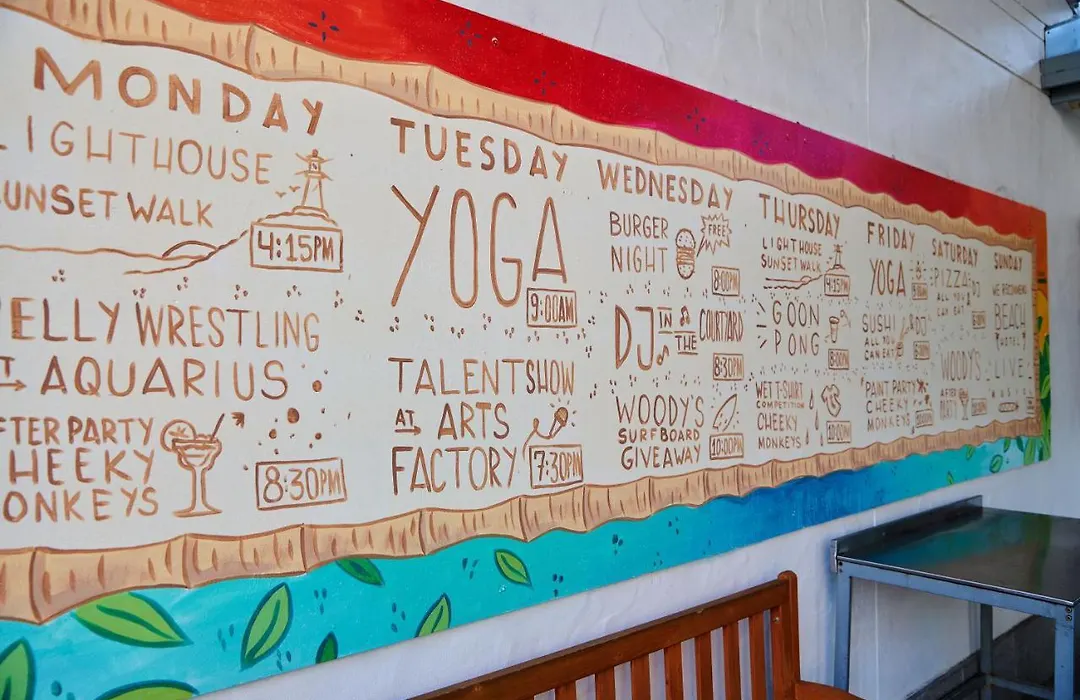 MONDAY
LIGHTHOUSE
SUNSET WALK
4:15PM
ELLY WRESTLING
AT AQUARIUS
8:30PM
FTER PARTY
HEEKY
ONKEYS
TUESDAY
YOGA
9:00AM
TALENTSHOW
AT ARTS
FACTORY
7:30PM
WEDNESDAY
BURGER
NIGHT
FREE
8:00PM
DJ IN THE COURTYARD
8:30PM
WOODY'S
SURFBOARD
GIVEAWAY
10:00PM
THURSDAY
LIGHTHOUSE
SUNSET WALK
4:15PM
GOON
PONG
8:00PM
WET T-SHIRT
COMPETITION
CHEEKY
MONKEYS
10:00PM
FRIDAY
YOGA
SUSHI & DJ
ALL YOU
CAN EAT
PAINT PARTY
CHEEKY
MONKEYS
SATURDAY
PIZZA & DJ
ALL YOU
CAN EAT
WOODY'S
AFTER
PARTY
SUNDAY
BEACH
LIVE